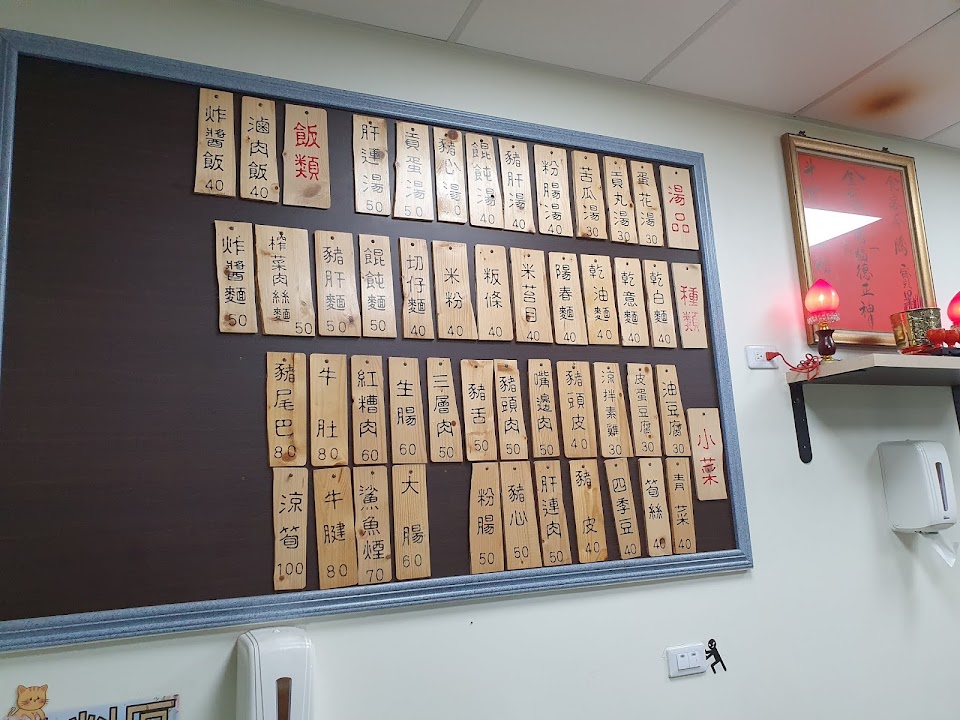 湯品
蛋花湯 30
貢丸湯 30
苦瓜湯 30
粉腸湯 40
豬肝湯 40
餛飩湯 40
豬心湯 50
貢蛋湯 40
肝連湯 50
飯類
滷肉飯 40
炸醬飯 40
種類
乾白麵 40
乾意麵 40
乾油麵 40
陽春麵 40
米苔目 40
粄條 40
米粉 40
切仔麵 40
餛飩麵 50
豬肝麵 50
榨菜肉絲麵 50
炸醬麵 50
小菜
油豆腐 30
皮蛋豆腐 30
涼拌素雞 30
豬頭皮 40
嘴邊肉 50
豬頭肉 50
豬舌 50
三層肉 50
生腸 60
紅糟肉 60
牛肚 80
豬尾巴 80
青菜 40
筍絲 40
四季豆 40
豬皮 40
肝連肉 50
豬心 50
粉腸 50
大腸 60
鯊魚煙 70
牛腱 80
涼筍 100
福德正神